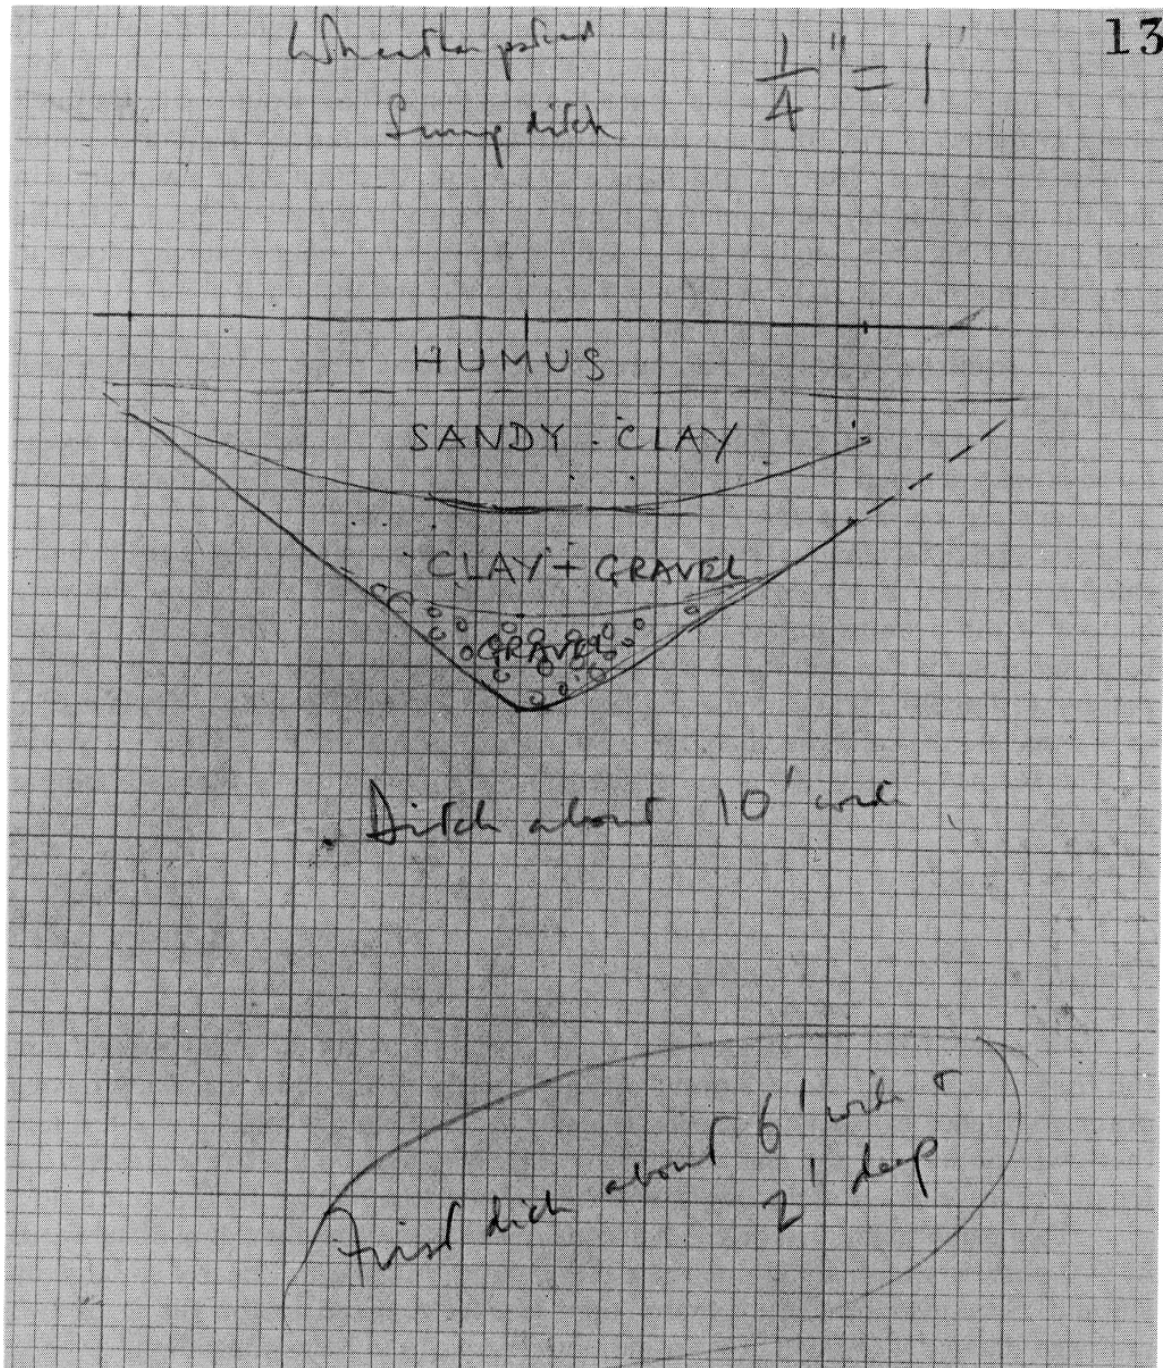 13
¼" = 1'
ditch
HUMUS
SANDY - CLAY
CLAY + GRAVEL
GRAVEL
Ditch about 10' wide
First ditch about 6' wide +
2' deep